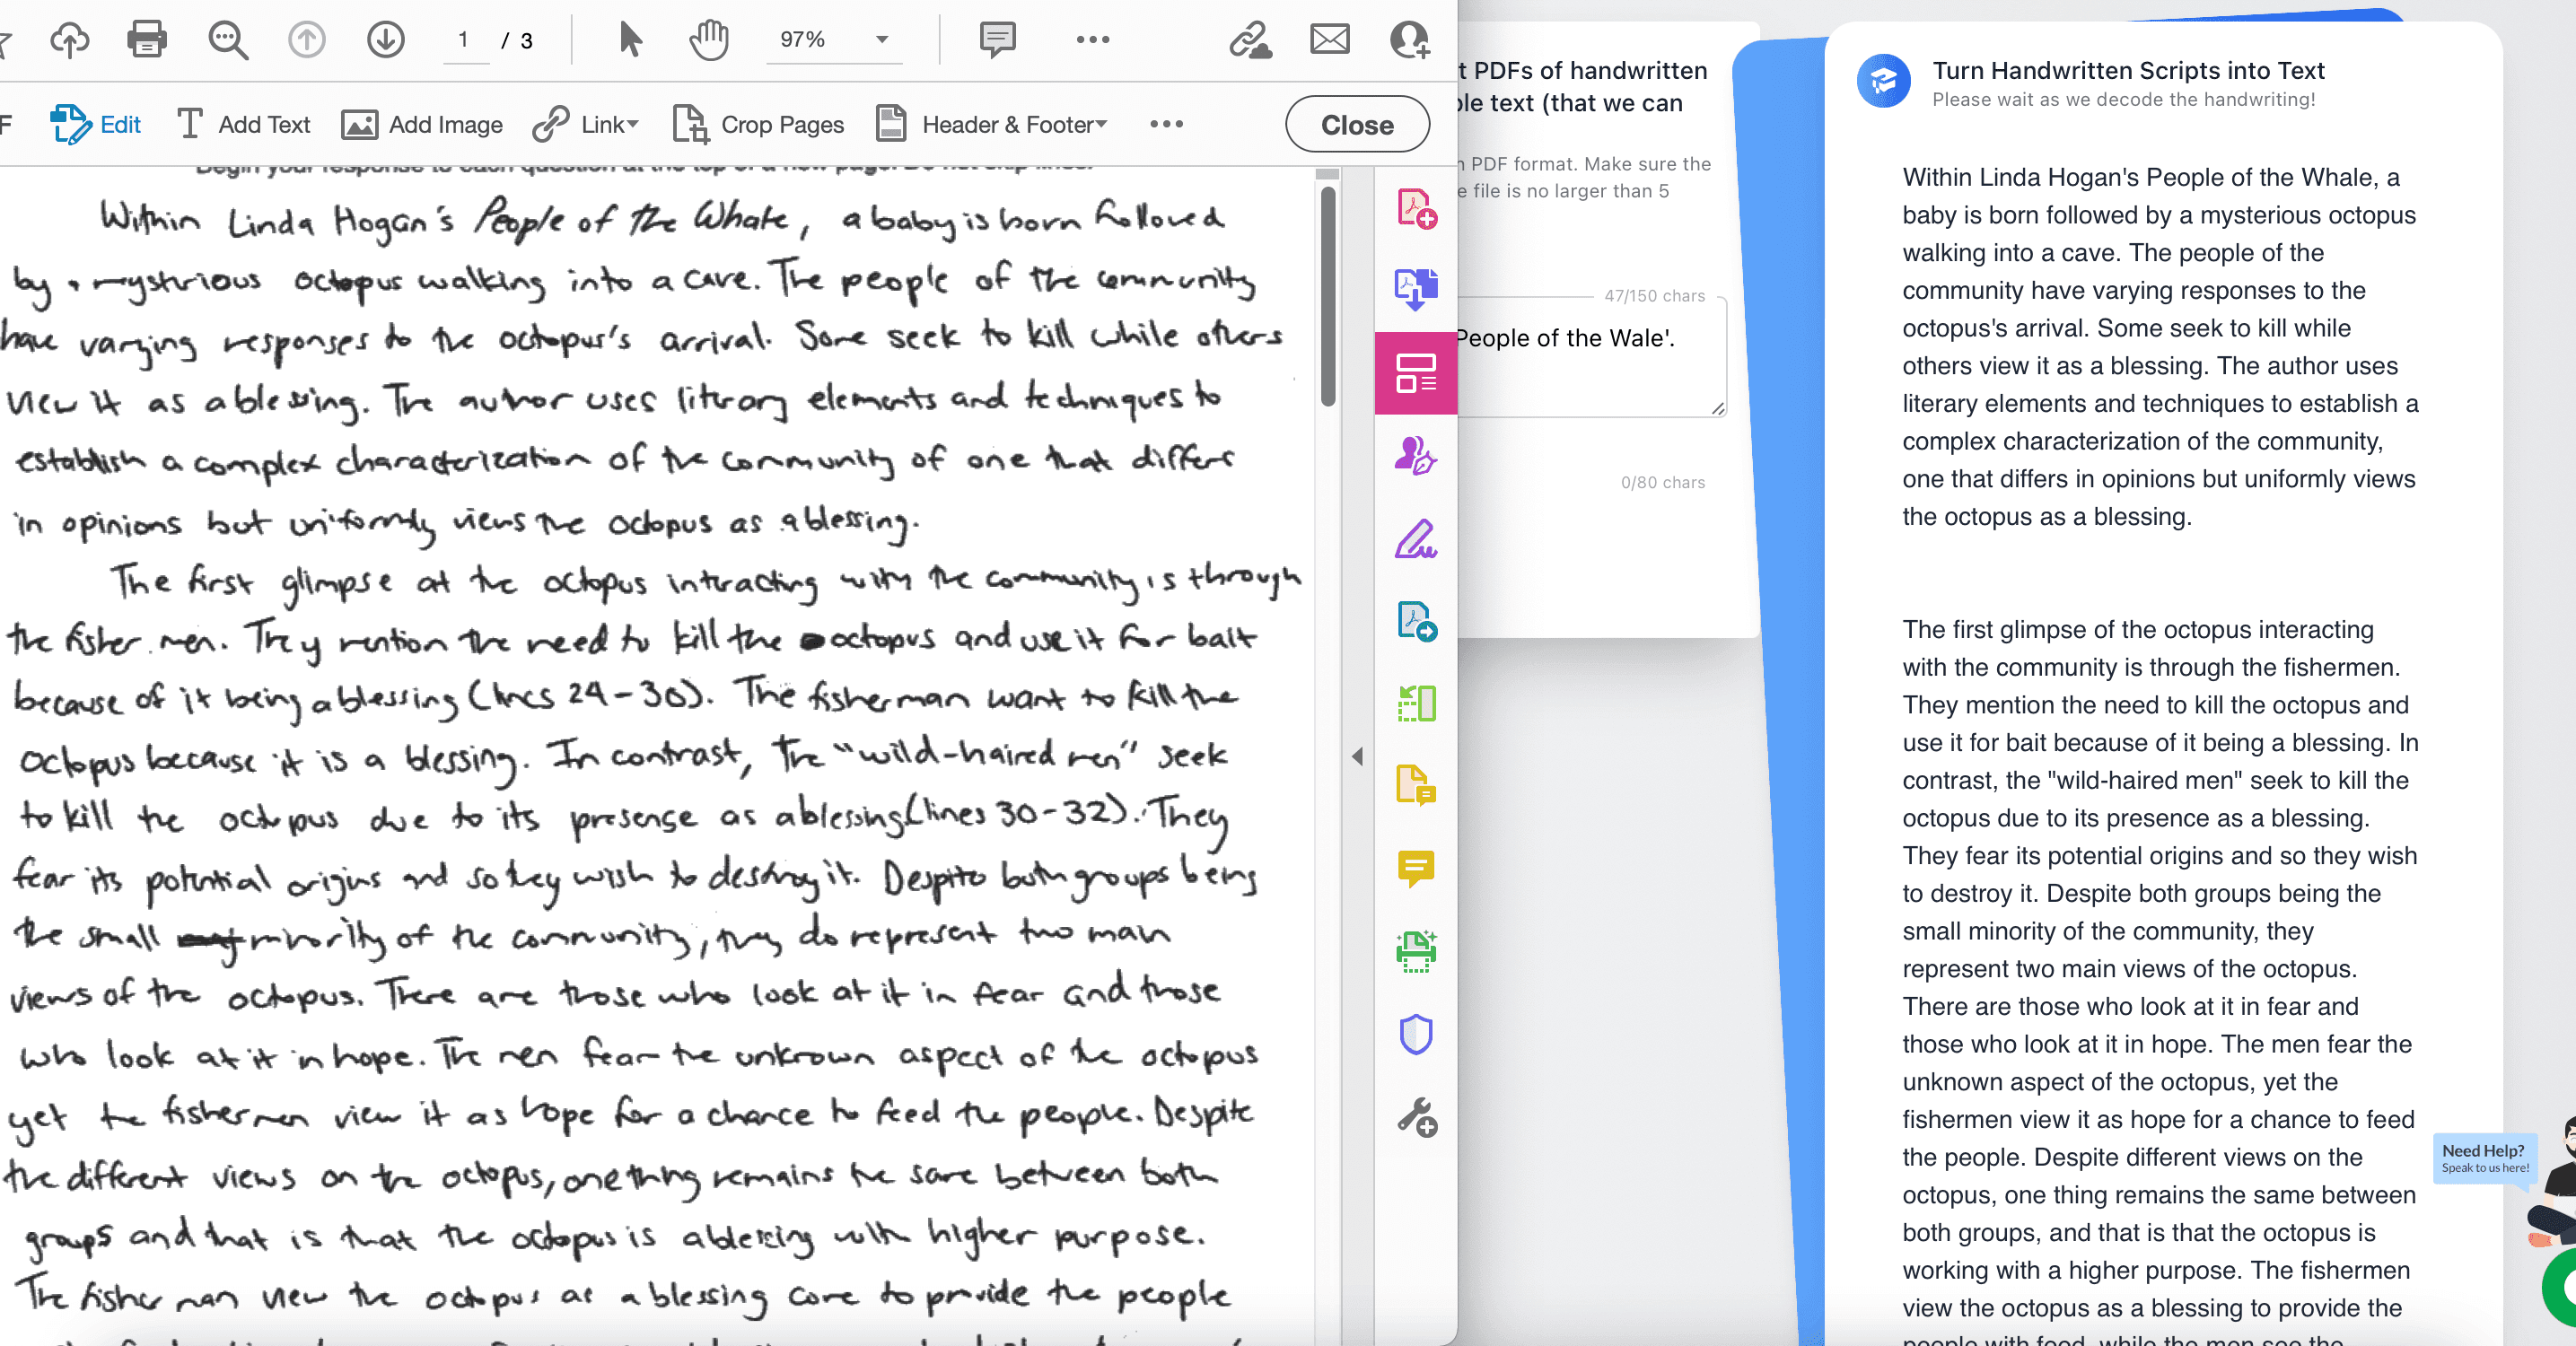 1 / 3
97%
Edit
Add Text
Add Image
Link
Crop Pages
Header & Footer
Close
Begin your response to each question at the top of a new page. Do not skip lines.
Within Linda Hogan's People of the Whale, a baby is born follwed
by a mystrious octopus walking into a cave. The people of the community
have varying responses to the octopus's arrival. Some seek to kill while others
view it as a blessing. The author uses literary elements and techniques to
establish a complex characterization of the community of one that differs
in opinions but uniformly views the octopus as a blessing.
The first glimpse at the octopus interacting with the community is through
the fisher men. They mention the need to kill the octopus and use it for bait
because of it being a blessing (lines 24-30). The fisherman want to kill the
octopus because it is a blessing. In contrast, the "wild-haired men" seek
to kill the octopus due to its presense as a blessing (lines 30-32). They
fear its potential origins and so they wish to destroy it. Despite both groups being
the small minority of the community, they do represent two main
views of the octopus. There are those who look at it in fear and those
who look at it in hope. The men fear the unknown aspect of the octopus
yet the fishermen view it as hope for a chance to feed the people. Despite
the different views on the octopus, one thing remains the same between both
groups and that is that the octopus is a blessing with higher purpose.
The fisher man view the octopus as a blessing come to provide the people
t PDFs of handwritten
ble text (that we can
n PDF format. Make sure the
e file is no larger than 5
47/150 chars
People of the Wale'.
0/80 chars
Turn Handwritten Scripts into Text
Please wait as we decode the handwriting!
Within Linda Hogan's People of the Whale, a
baby is born followed by a mysterious octopus
walking into a cave. The people of the
community have varying responses to the
octopus's arrival. Some seek to kill while
others view it as a blessing. The author uses
literary elements and techniques to establish a
complex characterization of the community,
one that differs in opinions but uniformly views
the octopus as a blessing.
The first glimpse of the octopus interacting
with the community is through the fishermen.
They mention the need to kill the octopus and
use it for bait because of it being a blessing. In
contrast, the "wild-haired men" seek to kill the
octopus due to its presence as a blessing.
They fear its potential origins and so they wish
to destroy it. Despite both groups being the
small minority of the community, they
represent two main views of the octopus.
There are those who look at it in fear and
those who look at it in hope. The men fear the
unknown aspect of the octopus, yet the
fishermen view it as hope for a chance to feed
the people. Despite different views on the
octopus, one thing remains the same between
both groups, and that is that the octopus is
working with a higher purpose. The fishermen
view the octopus as a blessing to provide the
people with food, while the men see the
Need Help?
Speak to us here!